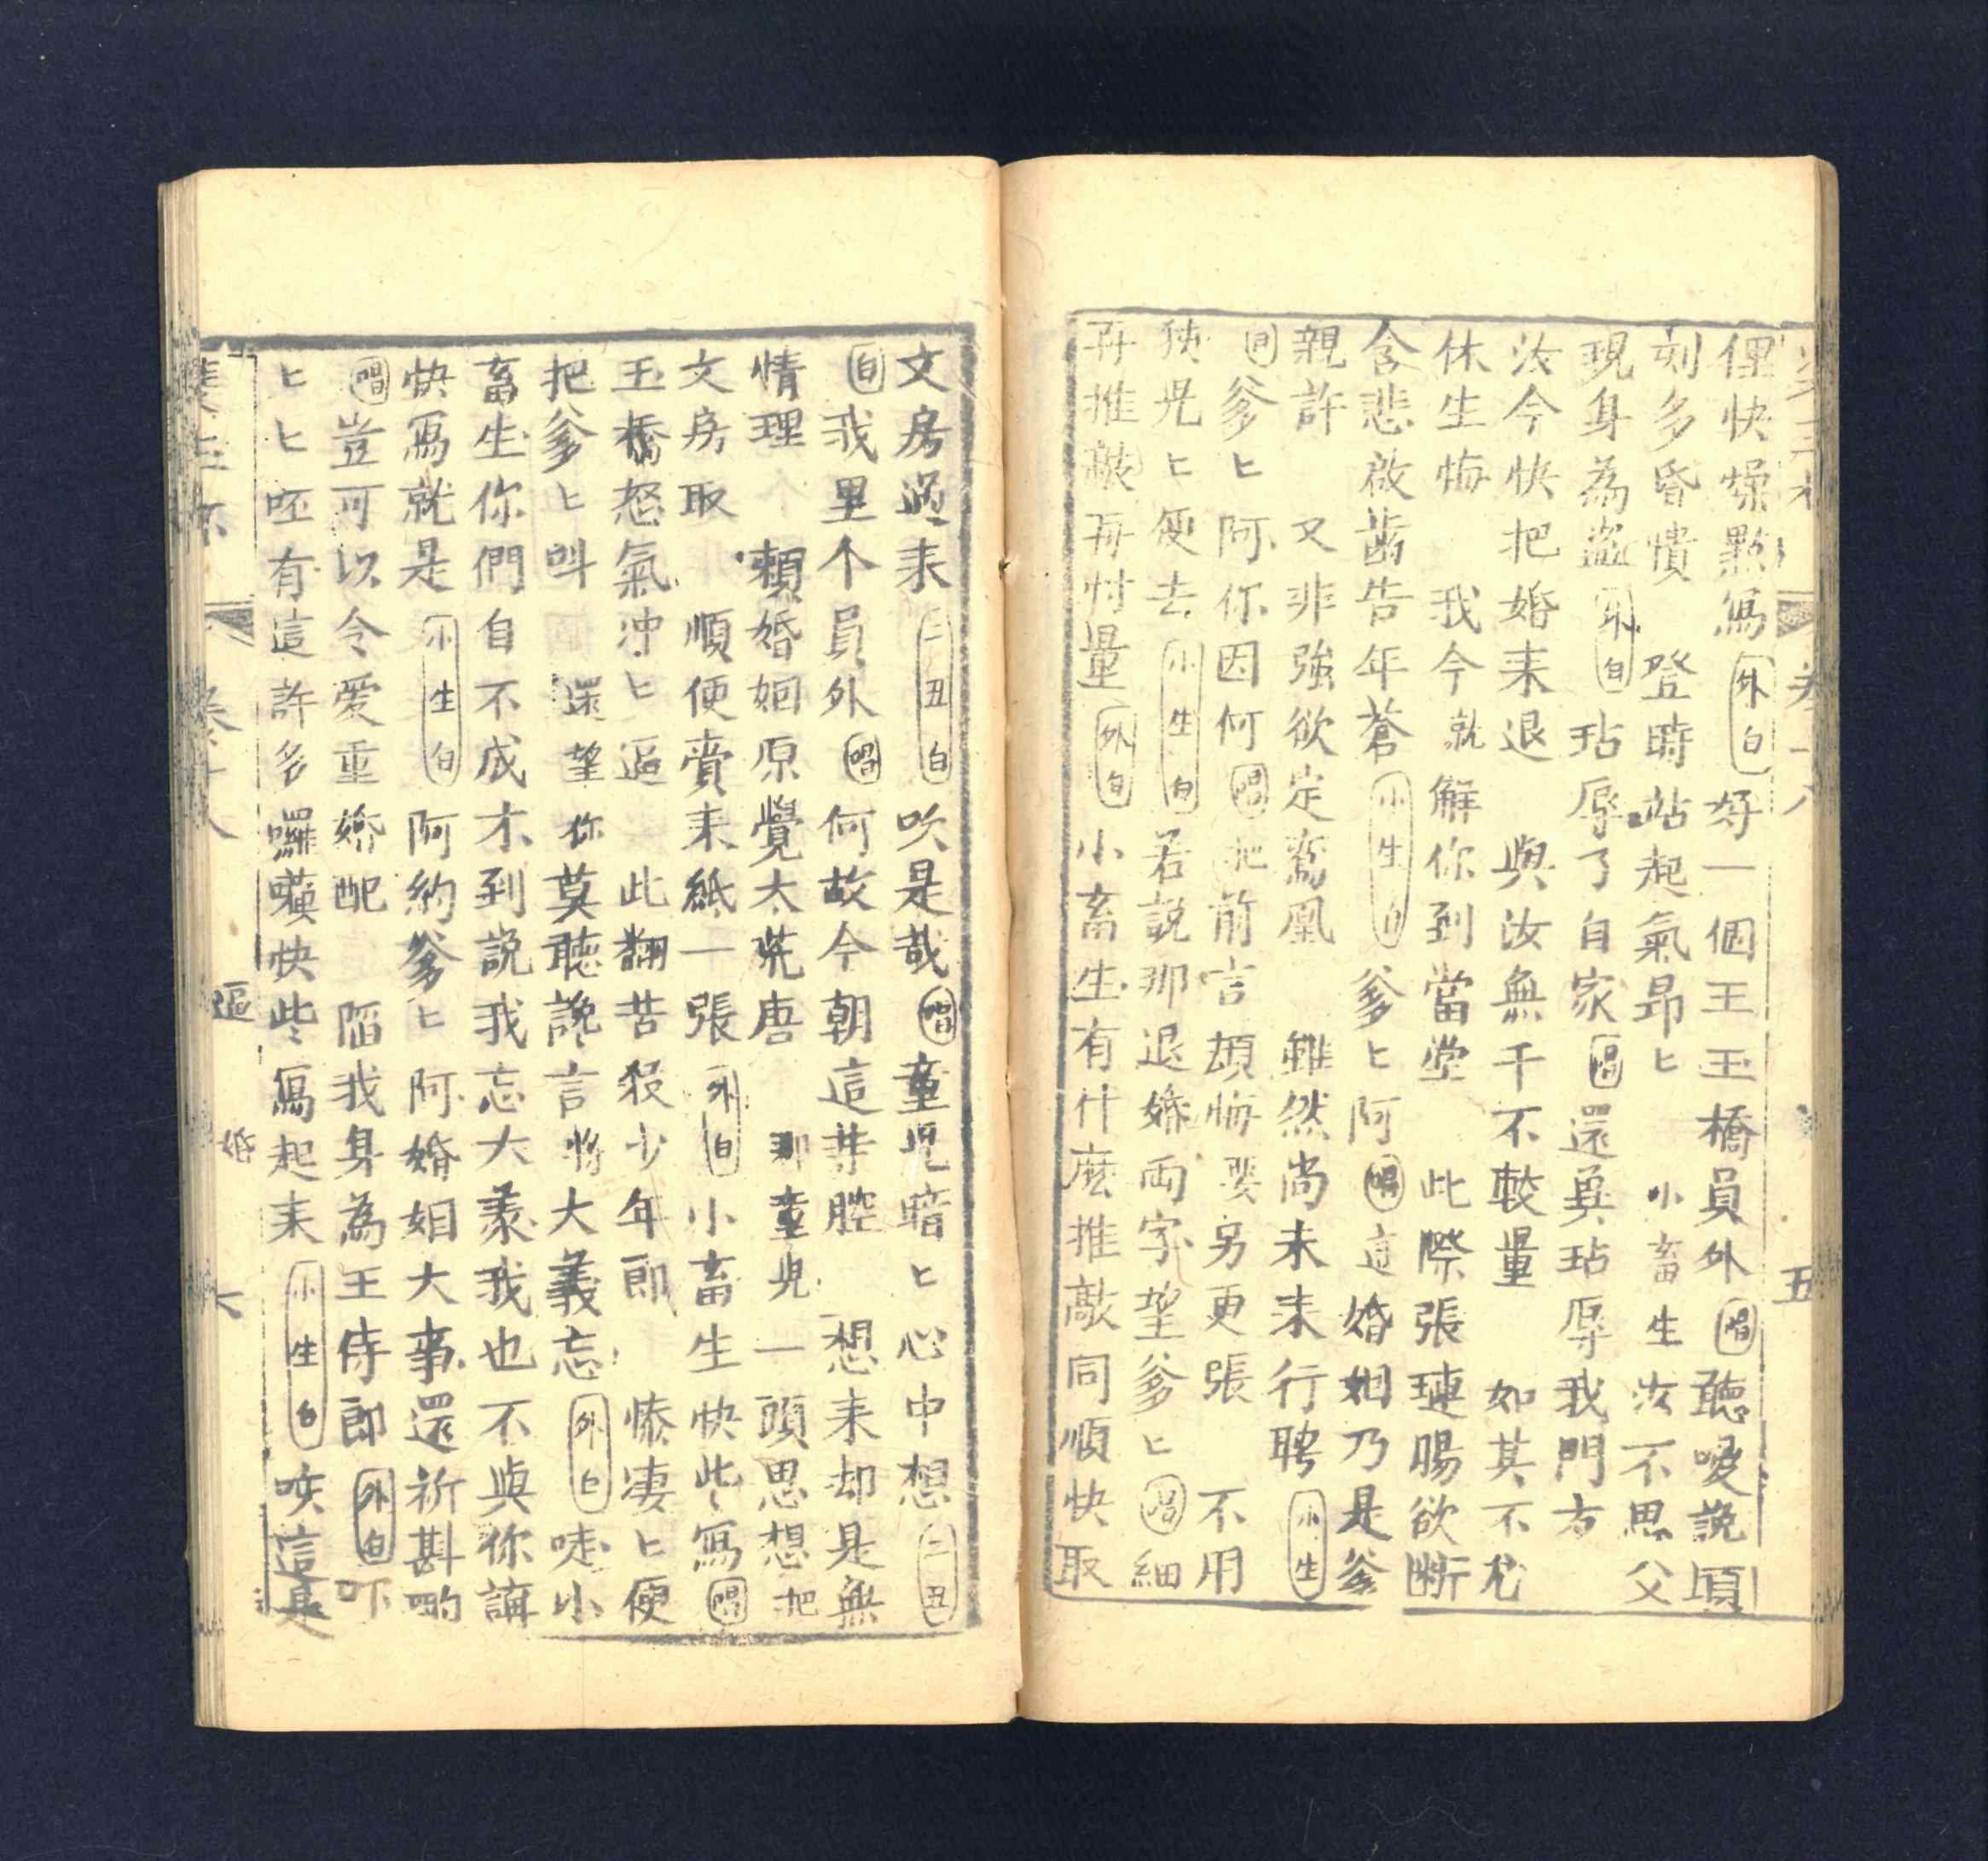 俚快燥點寫外白好一個王玉橋員外唱聽嗳說頃
刻多昏憒登時站起氣昂匕小畜生汝不思父
現身為盜小白玷辱了自家唱還與玷辱我門方
汝今快把婚耒退與汝無千不較量如其不尤
休生悔我今就解你到當堂此際張璉腸欲斷
含悲啟齒告年蒼小生白爹匕阿唱這婚姻乃是爹
親許又非強欲定鸞凰雖然尚未耒行聘小生
白爹匕阿你因何唱把前言頓悔要另更張不用
狹光匕便去小生白若説那退婚両字望爹匕唱細
再推敲再忖量外白小畜生有什麽推敲同順快取
文房過耒二丑白吹是哉唱童児暗匕心中想二丑
白我里个員外唱何故今朝這等腔想耒却是無
情理頼婚姻原覺太荒唐那童児一頭思想把
文房取順便賫耒紙一張外白小畜生快些寫唱
玉橋怒氣冲匕逼此翻苦殺少年郎慘凄匕便
把爹匕呌還望你莫聽讒言將大義忘外白唗小
畜生你們自不成才到説我忘大義我也不與你講
快寫就是小生白阿約爹匕阿婚姻大事還祈斟酌
唱豈可以令愛重婚配陷我身為王侍郎外白吓
匕匕呸有這許多囉囌快些寫起耒小生白唉這是
卷十八
逼婚
五
六